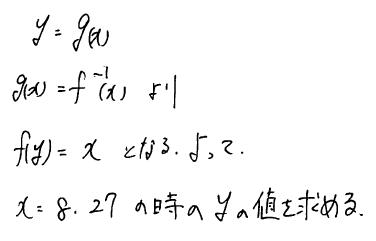 y = g(x)
g(x) = f⁻¹(x) より
f(y) = x となる. よって.
x = 8. 27 の時の y の値を求める.